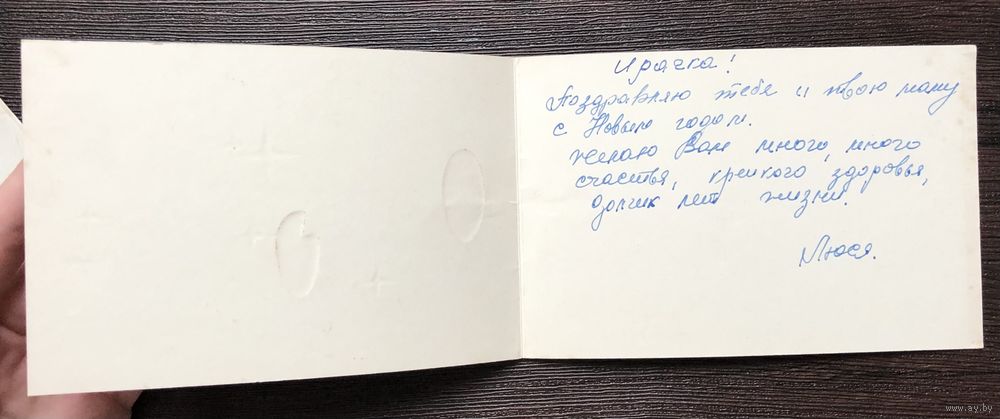 Ирачка!
Поздравляю тебя и твою маму
с Новым годом.
Желаю Вам много, много
счастья, крепкого здоровья,
долгих лет жизни.
Люся.
www.ay.by